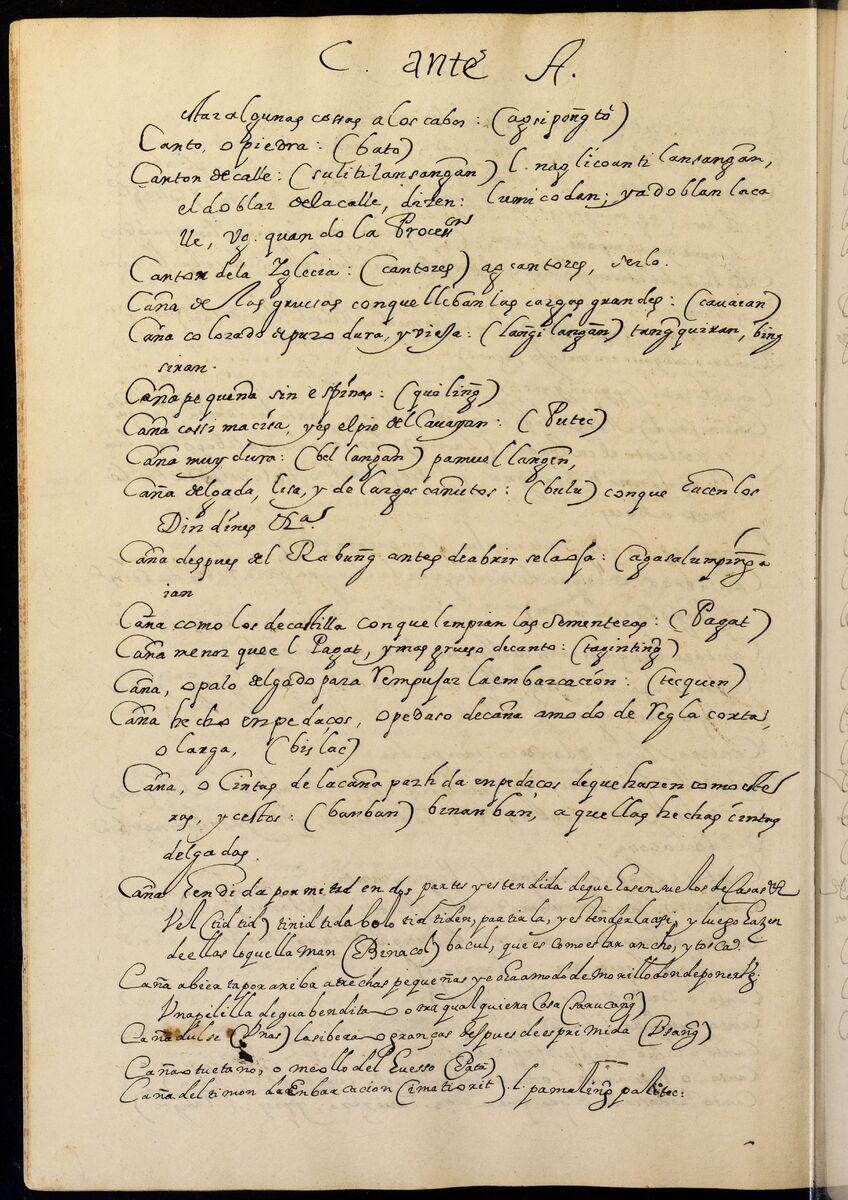 C. ante A.
star algunas cossas a los cabos: (agsipon͠g tò)
Canto, o piedra: (bato)
Canton de calle: (suliti lansan͠gan) l. naglicounti lansan͠gan,
el doblar de la calle, dizen: lumicodan; ya doblan la ca
lle, vg. quando la Procession
Cantor dela Yglecia: (cantores) agcantores, serlo.
Caña de las gruesas con que lleban las cargas grandes: (cauaian)
Caña colorado de puro dura, y viesa: (lan͠gi lan͠gan,) tan͠gquiran, bing
siran.
Caña pequeña sin espinas: (quilin͠g)
Caña cassi macisa, y es el pie del Cauayan: (Putec)
Caña muy dura: (bel lan͠gan) pamuel lan͠gen,
Caña delgada, lisa, y de largos cañutos: (bulu) con que hacen los
Dindines &a.
Caña despues del Rabun͠g antes de abrir se la osa: (agasalumpin͠g a
ian
Caña como los de castilla con que limpian las sementeras: (Pagat)
Caña menor que el Pagat, y mas grueso de canto: (tagintin͠g)
Caña, o palo delgado para rempusar la embarcacion: (tecquen)
Caña hecho en pedaços, o pedaso de caña a modo de regla corta,
o larga, (bislac)
Caña, o Cintas de la caña partida en pedacos de que hazen como este
ras, y cestos: (banban) binanban, aquellas hechas cintas
delgadas.
Caña hendida por mitad en dos partes y estendida de que hasen suelos de Casas &
Vel (tidtid) tinidtid abolo tidtiden, partirla, y estenderla assi, y luego hazen
de ellas lo que llaman (Binacol) bacul, que es como estar ancho, y tosca.
Caña abierta por ariba a trechas pequeñas y echa a modo de morillo donde ponerse:
Vna pililla de gua bendita o otra qualquiera Cosa (sarucan͠g)
Caña dulse (Vnas) la sibera o granças despues de esprimida (Vsan͠g)
Caña o tuetano, o meollo del huesso (Pata)
Caña del timon la Enbarcacion (imatiorit). l. pamalin͠g palitec: